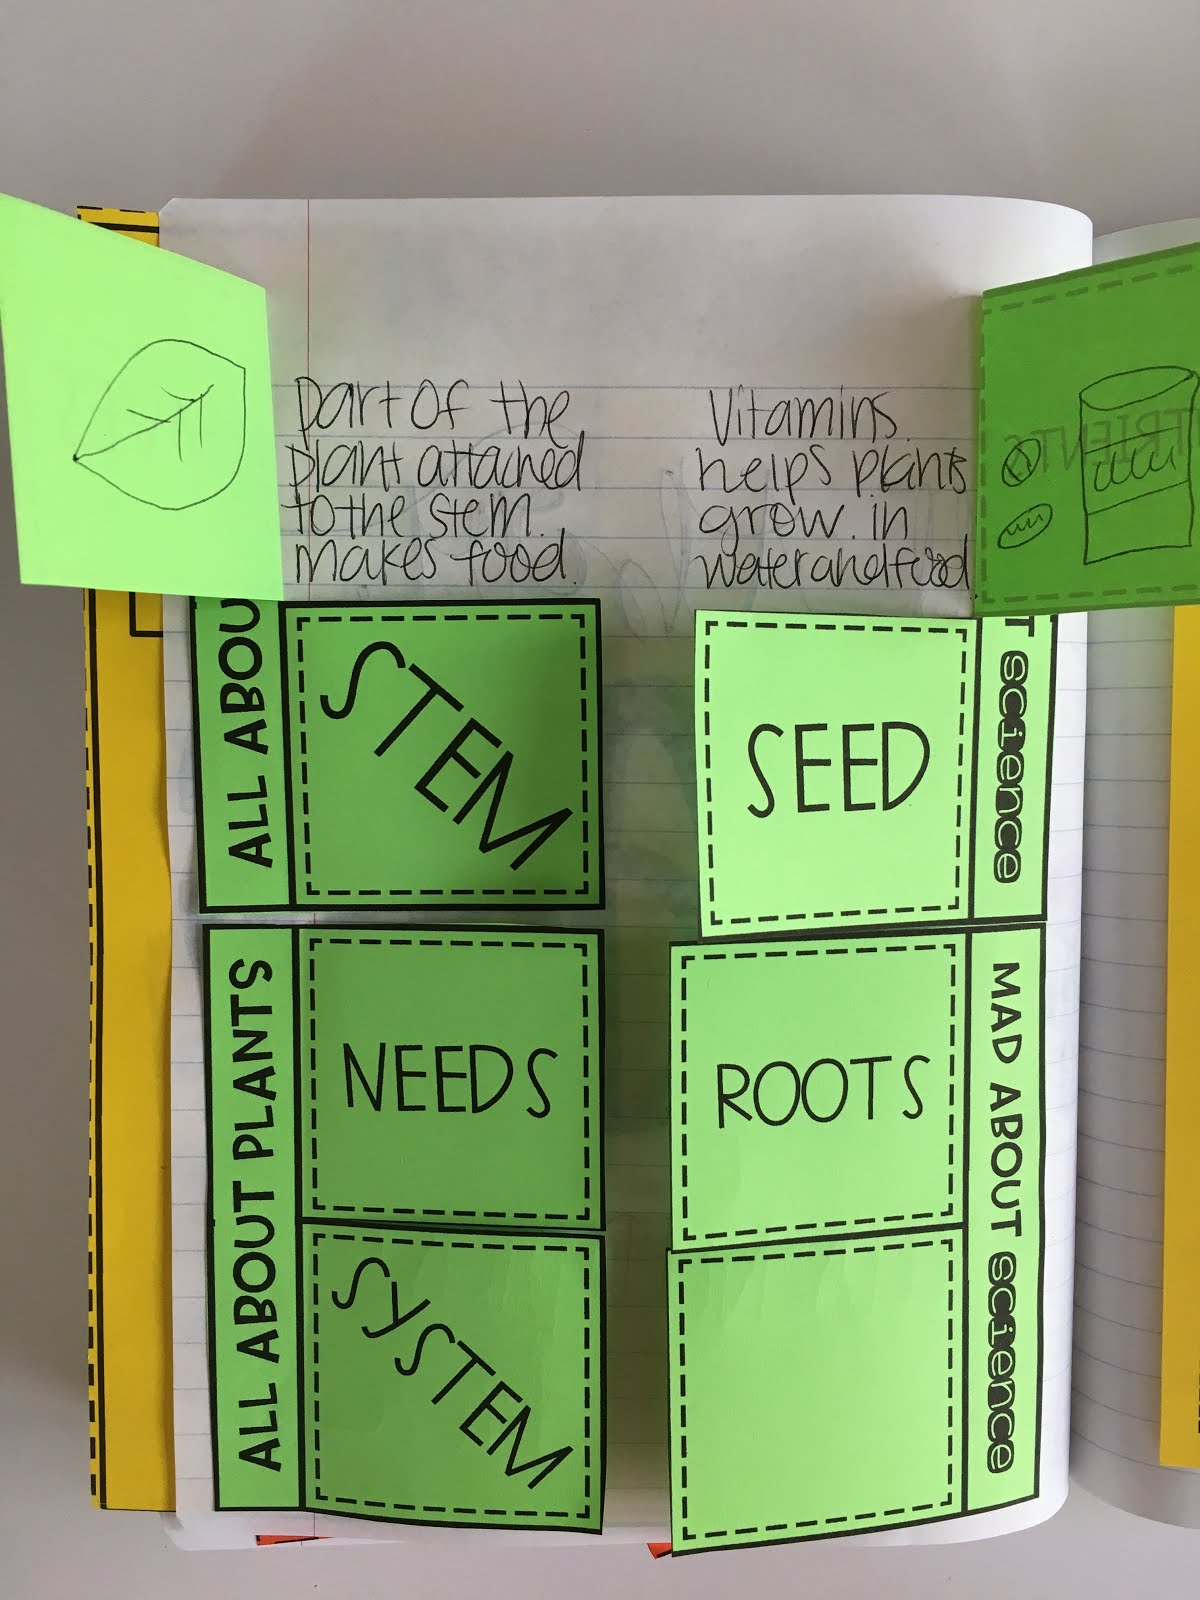 part of the
plant attached
to the stem.
makes food.
Vitamins.
helps plants
grow. in
water and food
TRIENTS
ALL ABOU
STEM
SEED
T SCIENCE
ALL ABOUT PLANTS
NEEDS
SYSTEM
ROOTS
MAD ABOUT SCIENCE